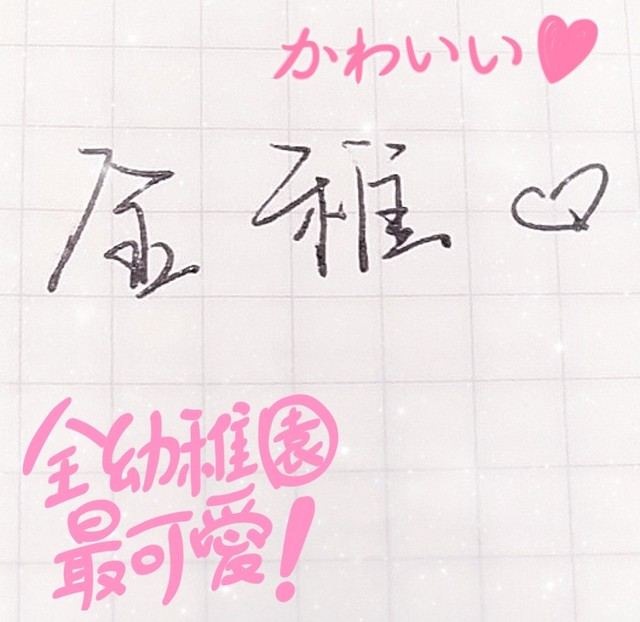 かわいい♥
全稚♡
全幼稚園
最可愛!